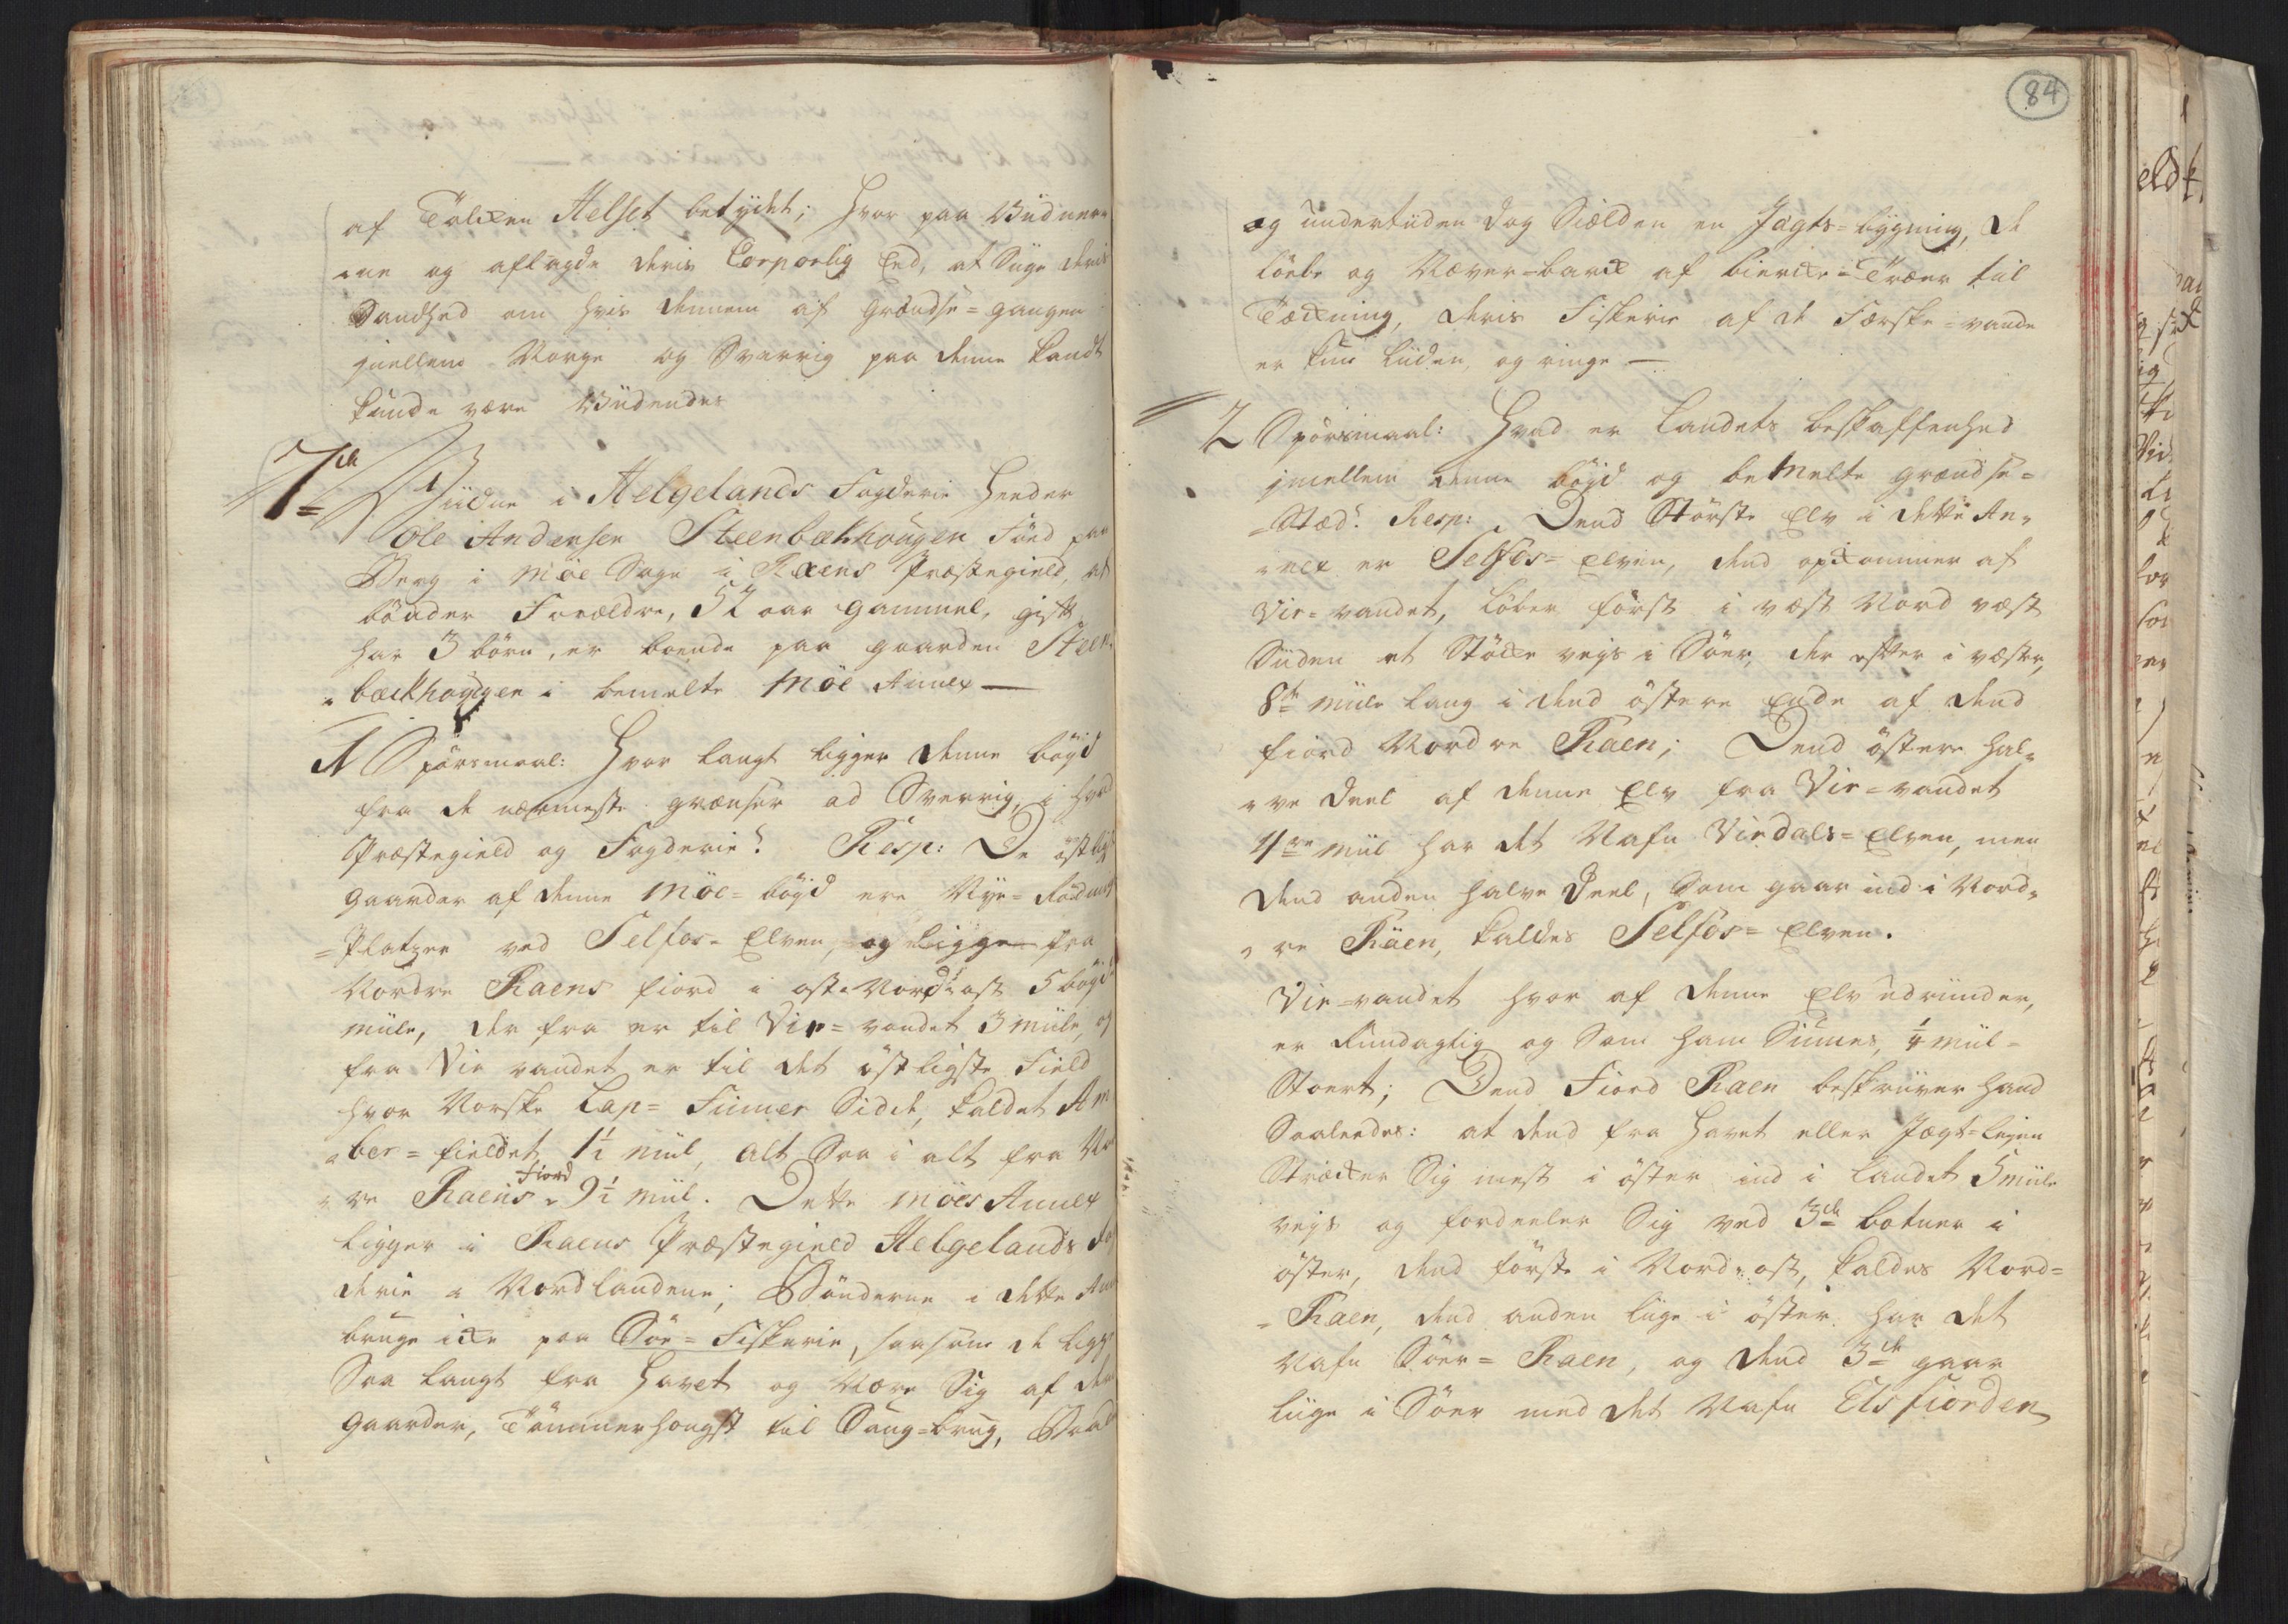 af Tolcken Helset betydet; Hvor paa Viidner-
-ne og aflagde deris Corporlig Eed, at Siige deris
Sandhed om hvis dennem af Grændse-gangen
jmellem Norge og Sverrig paa denne kandt
kunde være Viidendes
7de Viidne i Helgelands Fogderie Heeder
Ole Andersen Steenbækhougen Född paa
Berg i Möe Sogn i Raens Præstegield, af
bönder Forældre, 52 aar gammel, gift,
har 3 börn, er boende paa gaarden Steen-
-bækhougen i bemelte Möe Annex —
1 Spörsmaal: Hvor langt ligger denne böyd
fra de nærmeste grænser ad Sverrig, i hvad
Præstegield og Fogderie? Resp: De östligste
gaarder af denne Möe-böyd ere Nye-Rödnings
-Platzer ved Selfos-Elven, og ligge fra
Nordre Raens fiord i ost-Nord-ost 5 böyde
miile, der fra er til Vir-vandet 3 miile, og
fra Vir vandet er til det östligste Field
hvor Norske Lap-Finner Sidde, kaldet Am
-ber-fieldet 1½ miil, alt Saa i alt fra Nord
-re Raens Fiord 9½ miil. Dette Möes Annex
ligger i Raens Præstegield Helgelands Fog
derie i Nordlandene; Bönderne i dette Annex
bruge icke paa Söe-Fiskerie, saasom de ligge
Saa langt fra Havet og Nære Sig af deris
gaarder, Tömmerhougst til Saug-brug, Baad
84
og undertiiden dog Siælden en Jagts-bygning, de
löbe og Næver-barck af biercke-Træer til
Tæckning, deris Fiskerie af de Færske-vande
er kun liiden og ringe —
2 Spörsmaal: Hvad er Landets beskaffenhed
jmellem denne böyd og bemelte grændse-
-Stæd? Resp: Dend Störste Elv i dette An-
-nex er Selfos-Elven, dend opkommer af
Vir-vandet, löber först i væst Nord væst
Siiden et Stöcke veys i Söer, der efter i væster,
8te miile lang i dend östere Ende af dend
fiord Nordre Raen; Dend östere hal-
-ve Deel af denne Elv fra Vir-vandet
4re miil har det Nafn Virdals-Elven, men
dend anden halve Deel, Som gaar ind i Nord-
-re Raen, kaldes Selfos-Elven.
Vir-vandet hvor af denne Elv udrinder,
er Rundagtig og Som ham Siunes, ¼ miil
Stoert; Dend Fiord Raen beskriver hand
Saaledes: at dend fra Havet eller Jægt-leyen
Strecker Sig mest i öster ind i Landet 5 miile
veys og fordeeler Sig ved 3de botner i
öster, dend förste i Nord-ost, kaldes Nord-
-Raen, dend anden liige i öster har det
Nafn Söer-Raen, og dend 3de gaar
liige i Söer med det Nafn Elsfiorden